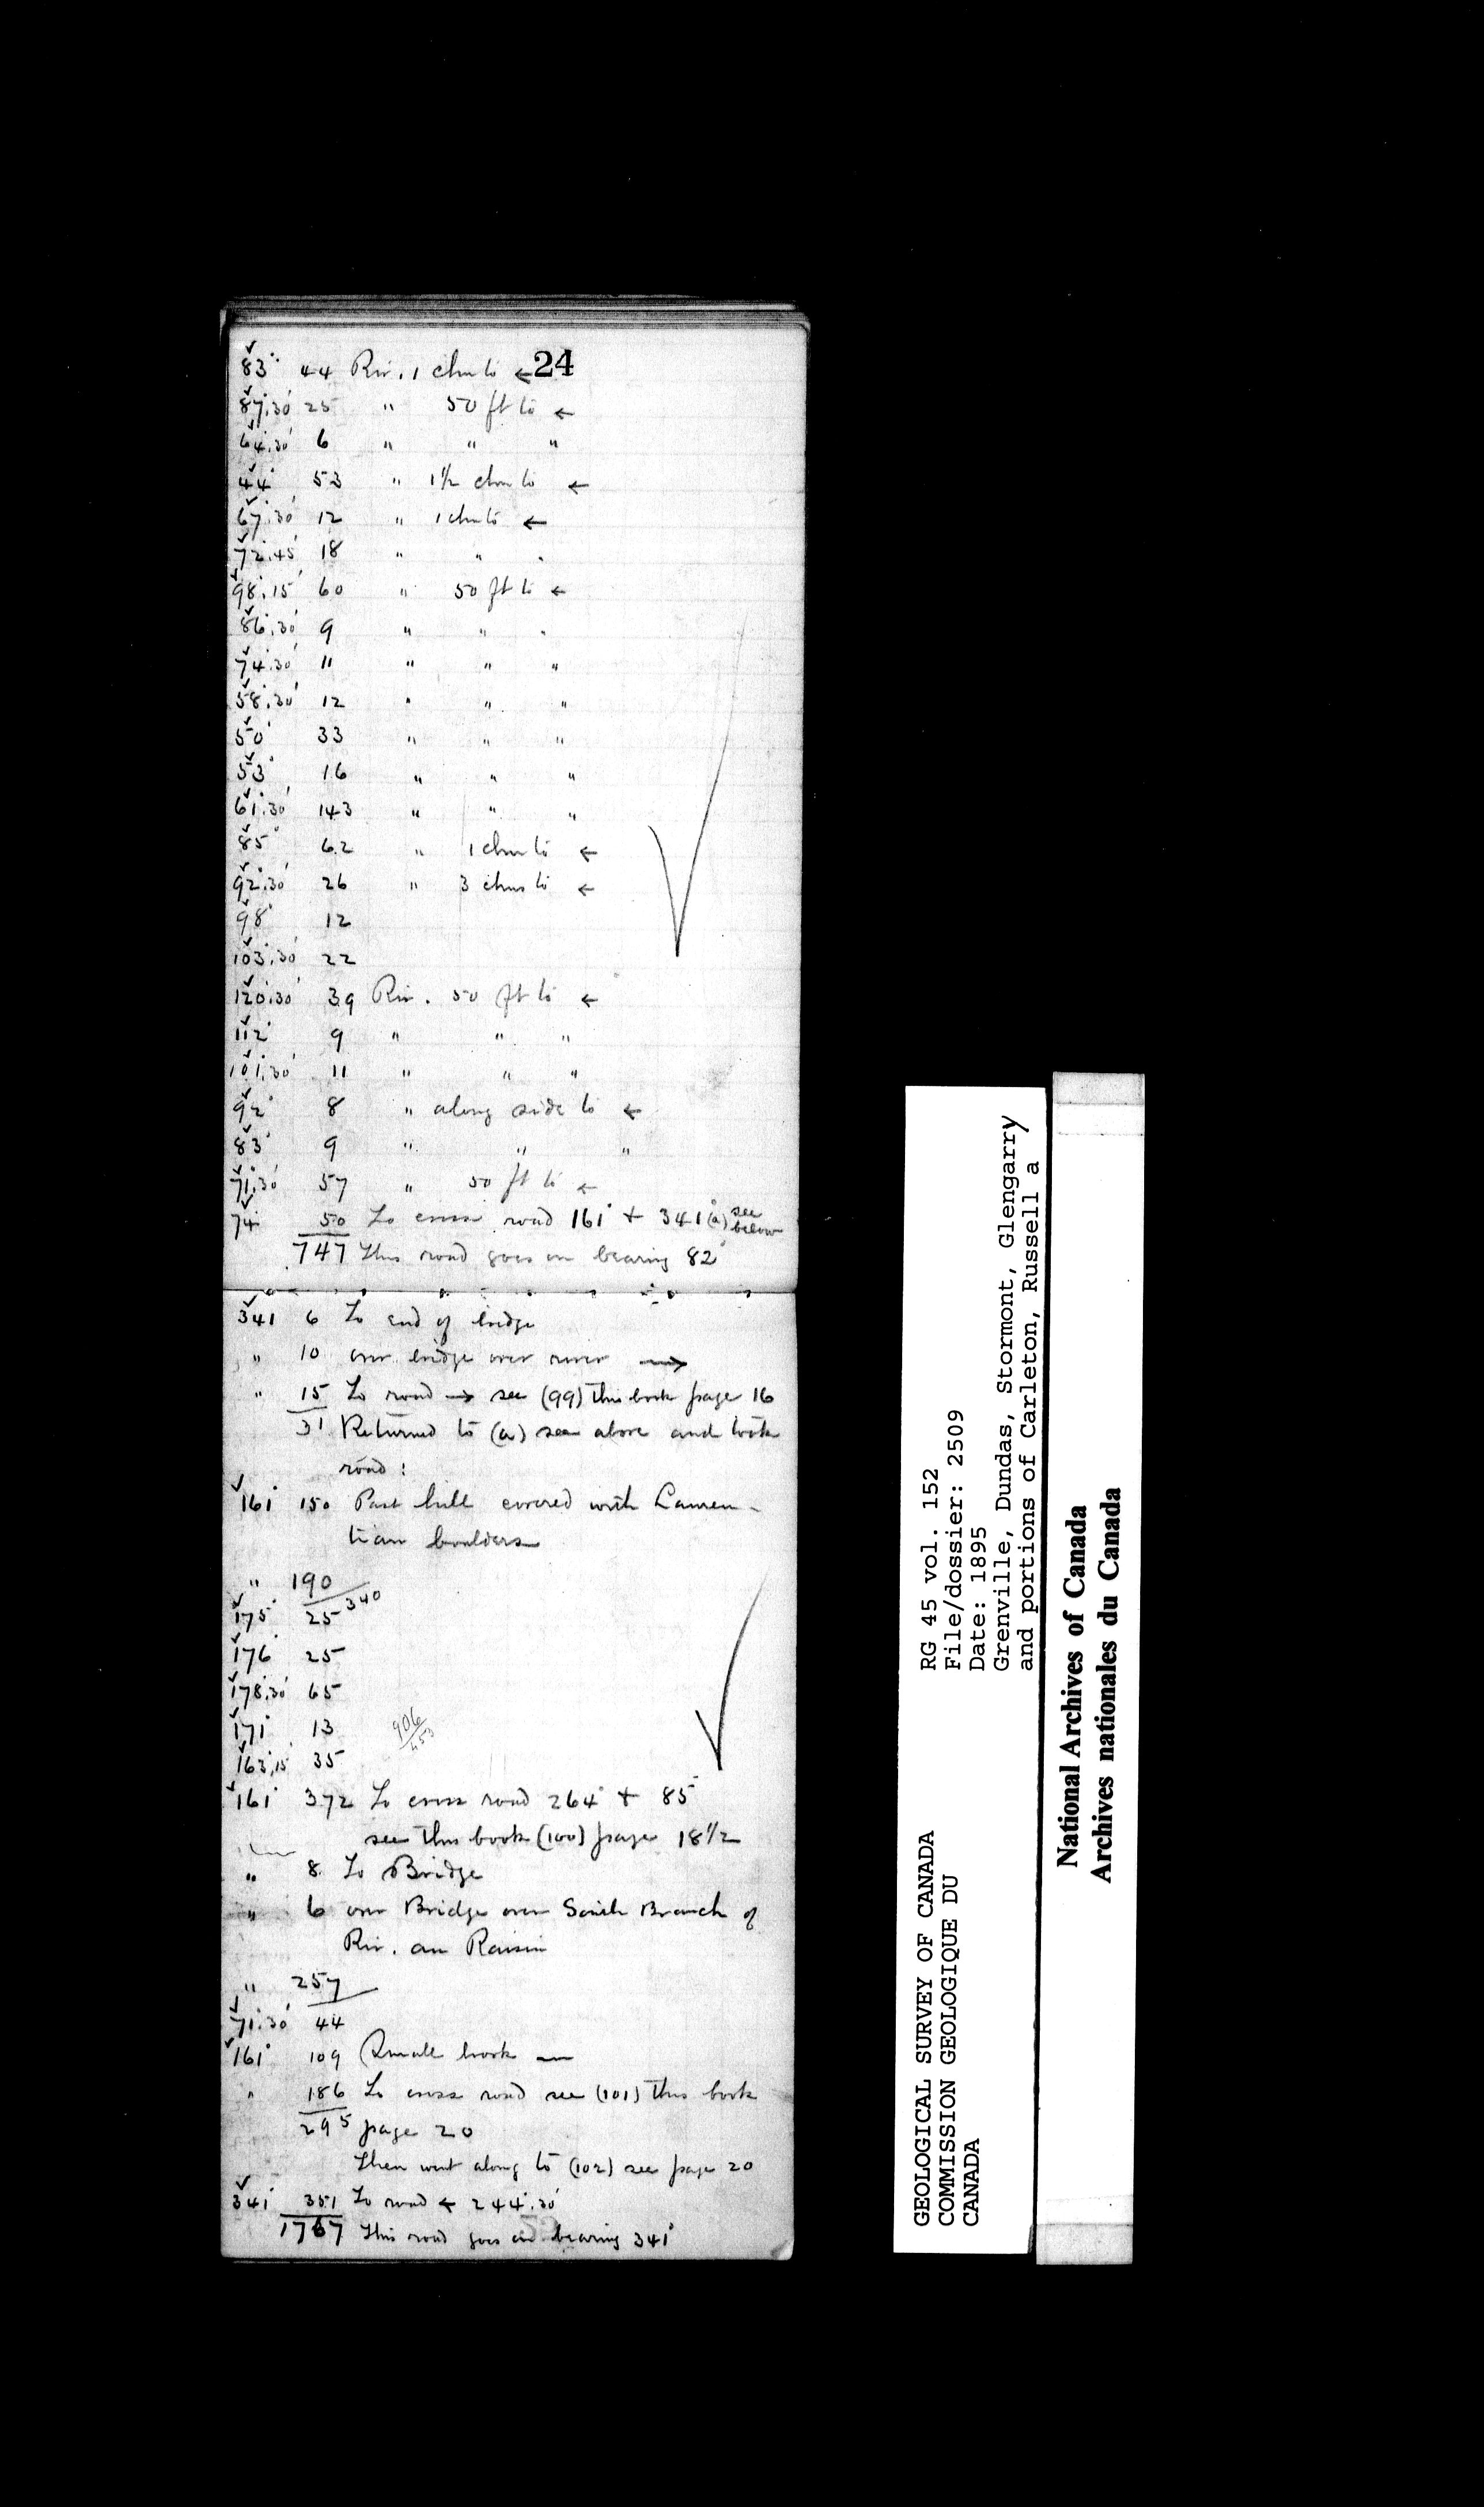 24
83° 44 Riv. 1 chn to ←
87°.30' 25 " 50 ft to ←
64°.30' 6 " " "
44° 53 " 1½ chn to ←
67°.30' 12 " 1 chn to ←
72°.45' 18 " " "
98°.15' 60 " 50 ft to ←
86°.30' 9 " " "
74°.30' 11 " " "
58°.30' 12 " " "
50° 33 " " "
53° 16 " " "
61°.30' 143 " " "
85° 62 " 1 chn to ←
92°.30' 26 " 3 chns to ←
98° 12
103°.30' 22
120°.30' 39 Riv. 50 ft to ←
112° 9 " " "
101°.30' 11 " " "
92° 8 " along side to ←
83° 9 " " "
71°.30' 57 " 50 ft to ←
74° 50 To cross road 161° + 341° (a) see below
747 This road goes on bearing 82°
341 6 To end of bridge
" 10 over bridge over river →
" 15 To road → see (99) this book page 16
31 Returned to (a) see above and took
road :
161° 150 Past hill covered with Lauren-
tian boulders
" 190
340
175° 25
176° 25
178°.30' 65
171° 13
906
453
163°.15' 35
161° 372 To cross road 264° + 85°
see this book (100) page 18½
" 8 To Bridge
" 6 over Bridge over South Branch of
Riv. au Raisin
" 257
71°.30' 44
161° 109 Small brook —
" 186 To cross road see (101) this book
295 page 20
Then went along to (102) see page 20
341° 351 To road ← 244°.30'
1767 This road goes on bearing 341°
GEOLOGICAL SURVEY OF CANADA
COMMISSION GEOLOGIQUE DU
CANADA
RG 45 vol. 152
File/dossier: 2509
Date: 1895
Grenville, Dundas, Stormont, Glengarry
and portions of Carleton, Russell a
National Archives of Canada
Archives nationales du Canada